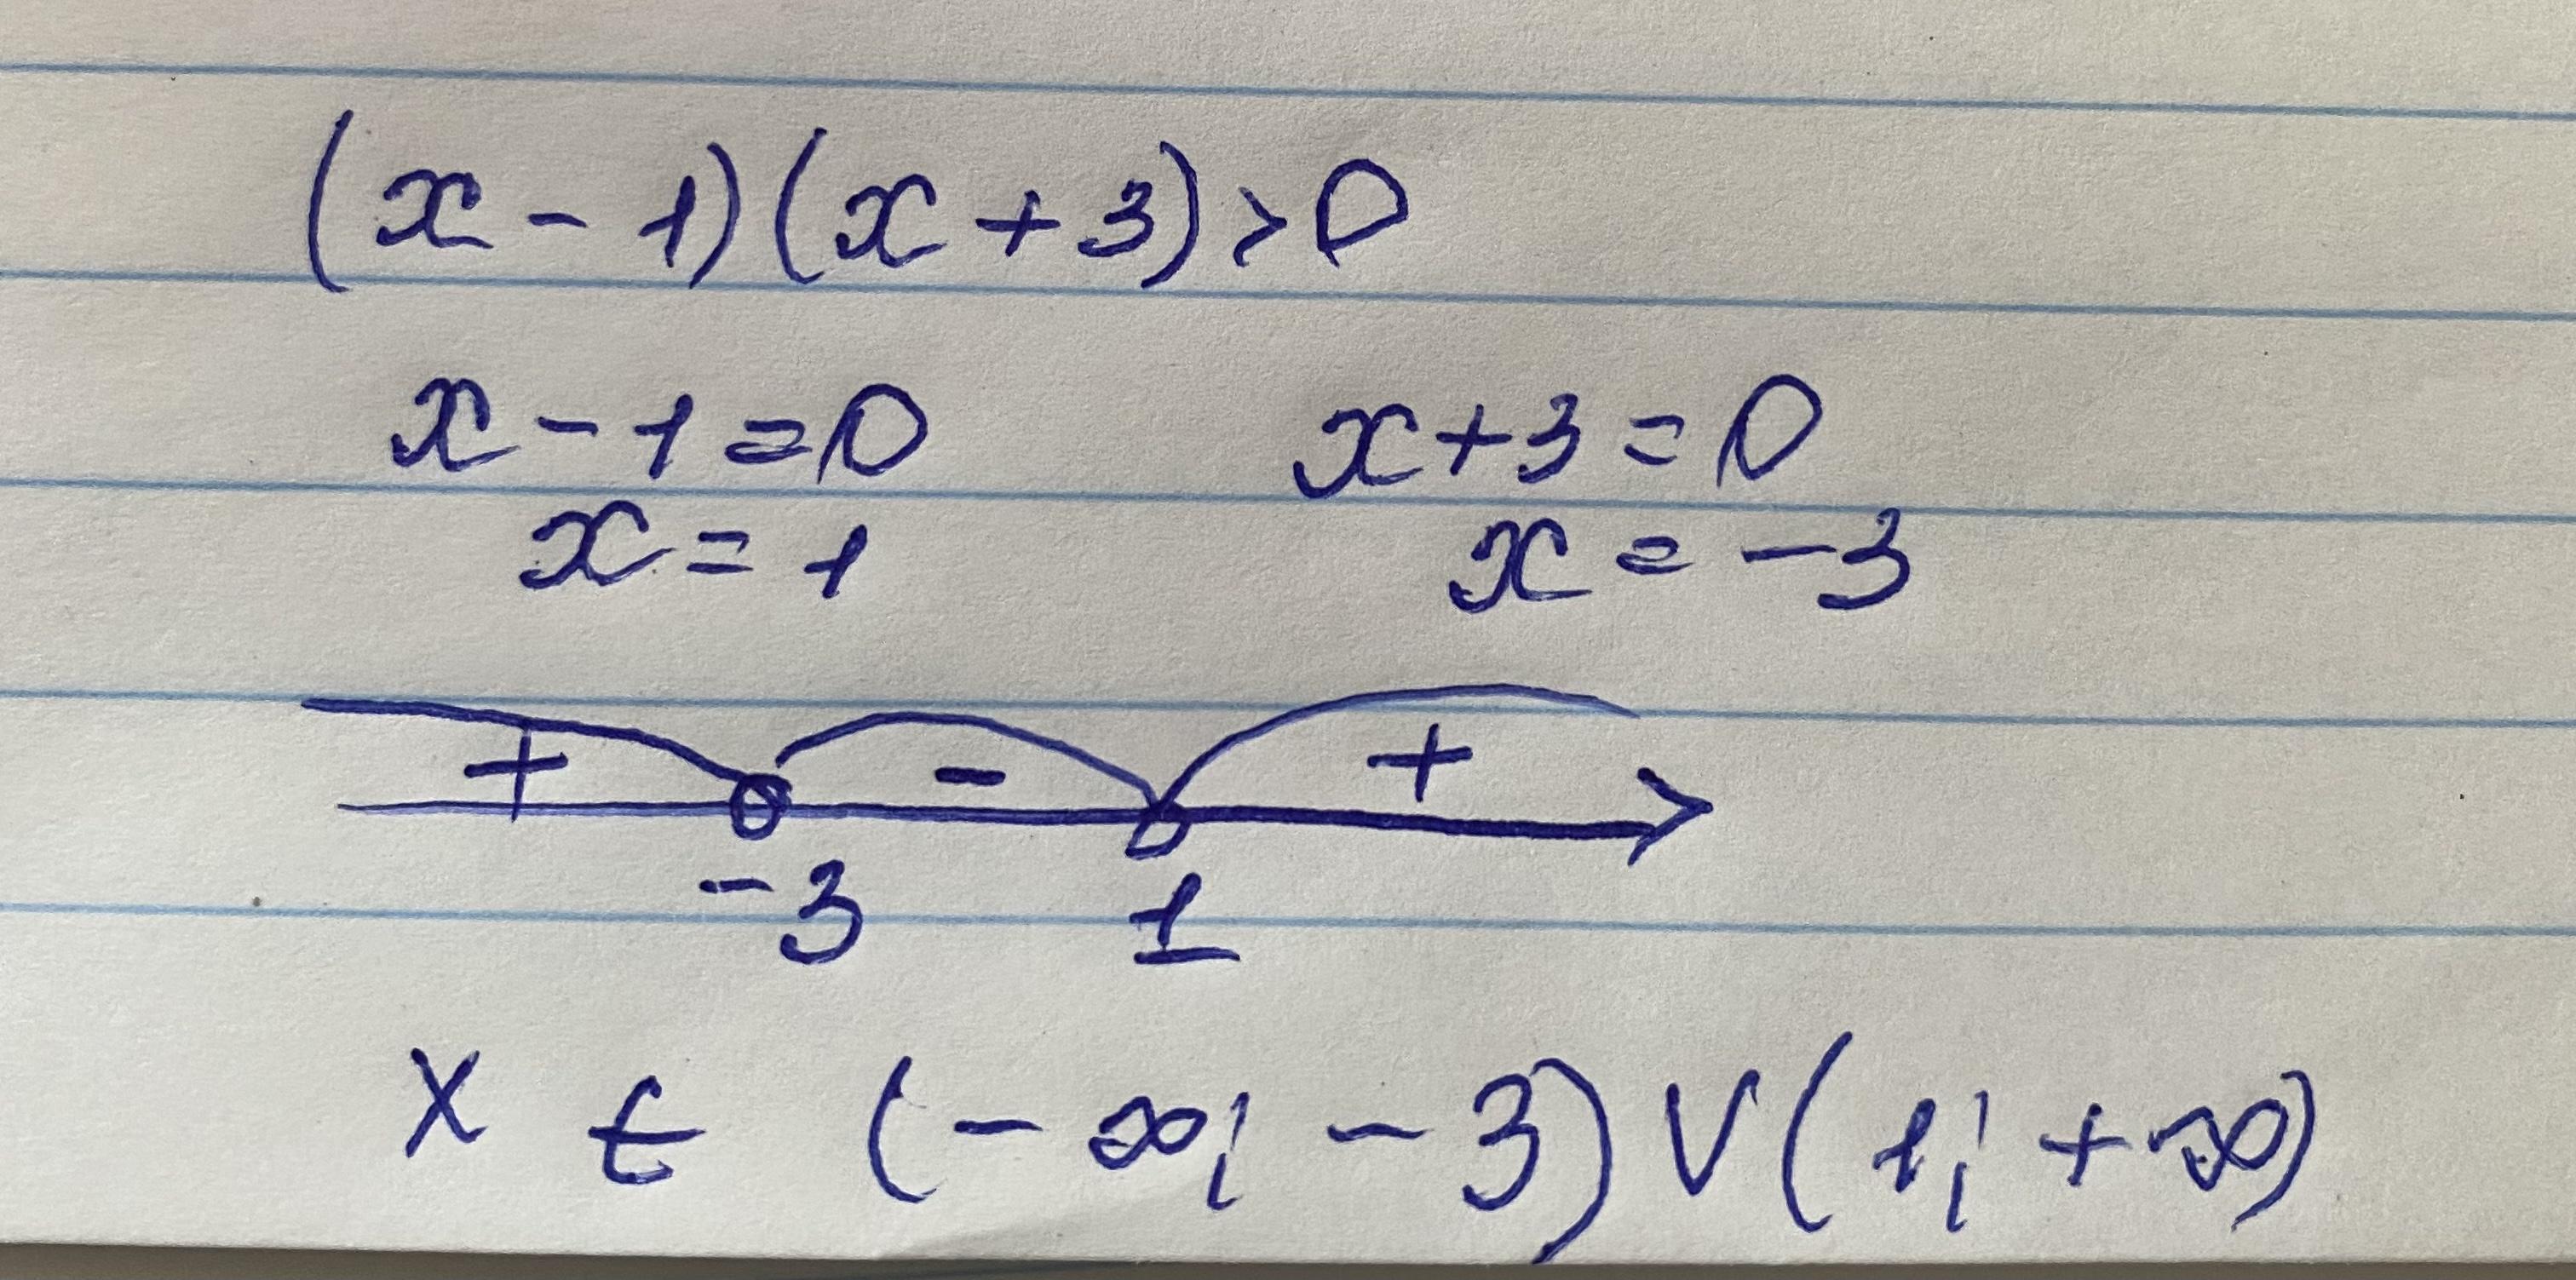 (x - 1)(x + 3) > 0
x - 1 = 0 x + 3 = 0
x = 1 x = -3
+ - +
-3 1
x ∈ (-∞; -3) ∪ (1; +∞)